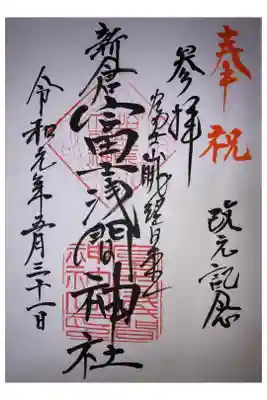 奉祝
改元記念
参拝
富士山
新倉富士浅間神社
令和元年五月三十一日